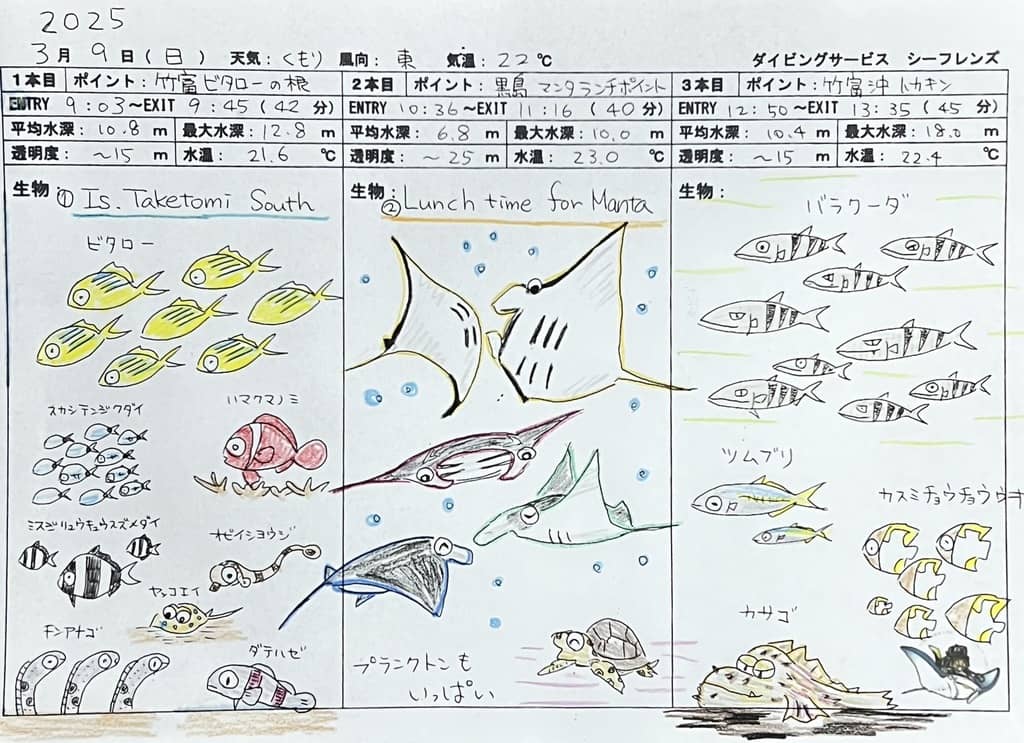 2025
3月 9日(日) 天気:くもり 風向:東 気温:22℃ ダイビングサービス シーフレンズ
1本目 ポイント:竹富ビタローの根
ENTRY 9:03〜EXIT 9:45(42分)
平均水深:10.8m 最大水深:12.8m
透明度:〜15m 水温:21.6℃
生物:① Is. Taketomi South
ビタロー
スカシテンジクダイ
ハマクマノミ
ミスジリュウキュウスズメダイ
オビイシヨウジ
ヤッコエイ
チンアナゴ
ダテハゼ
2本目 ポイント:黒島 マンタランチポイント
ENTRY 10:36〜EXIT 11:16(40分)
平均水深:6.8m 最大水深:10.0m
透明度:〜25m 水温:23.0℃
生物:② Lunch time for Manta
プランクトンも
いっぱい
3本目 ポイント:竹富沖 トカキン
ENTRY 12:50〜EXIT 13:35(45分)
平均水深:10.4m 最大水深:18.0m
透明度:〜15m 水温:22.4℃
生物:
バラクーダ
ツムブリ
カスミチョウチョウウオ
カサゴ